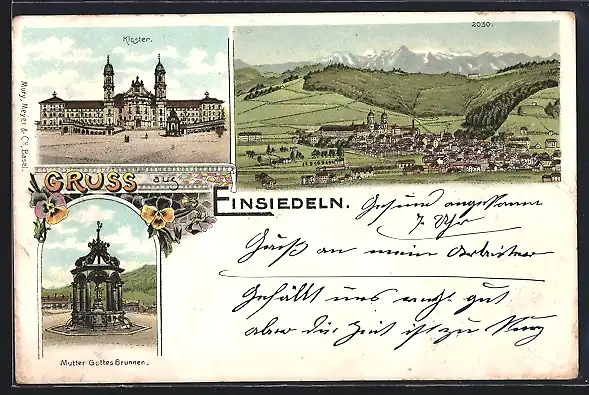 Kloster.
2030.
Mury, Meyer & Cie. Basel.
GRUSS aus
EINSIEDELN.
Gesund angekommen
7 Uhr
Gruß an mein
Gefällt uns recht gut
aber die Zeit ist zu kurz
Mutter Gottes Brunnen.